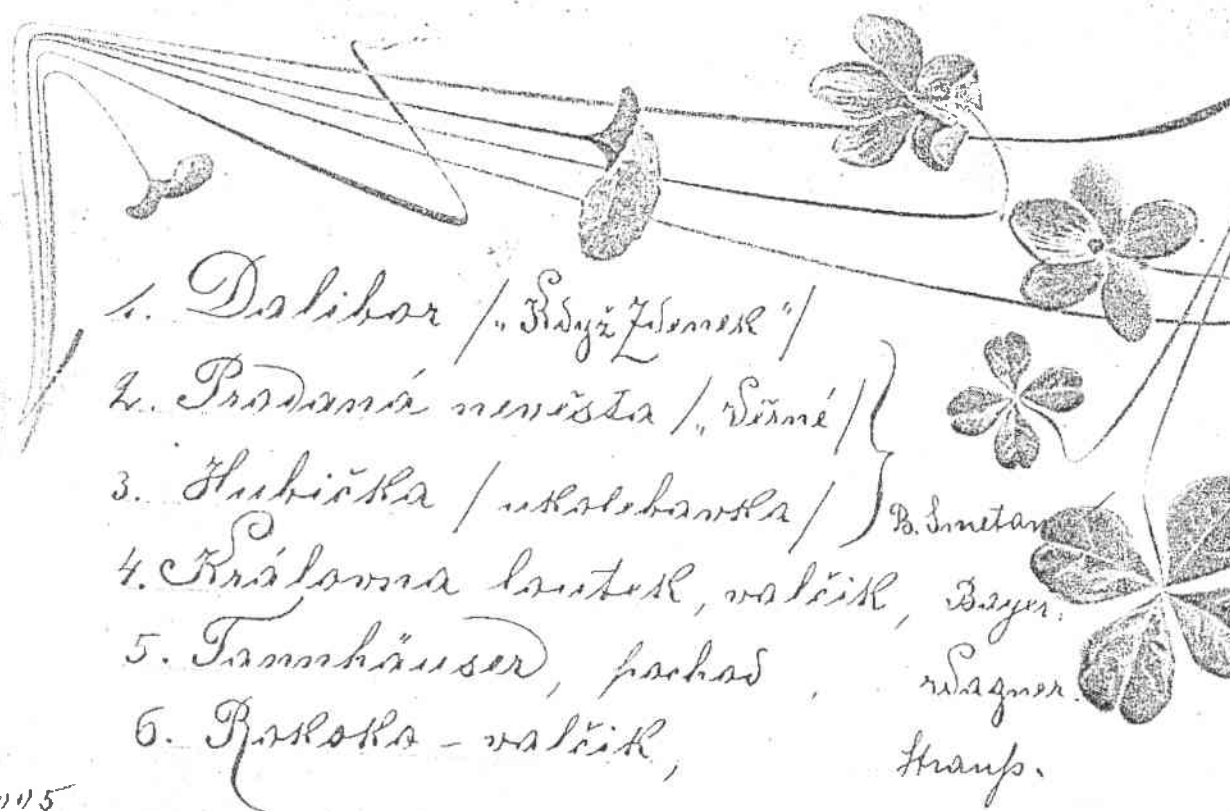 1. Dalibor /„Když Zdenek"/
2. Prodaná nevěsta /„Věrné/
3. Hubička /ukolebavka/ B. Smetan
4. Královna loutek, valčik, Bayer.
5. Tannhäuser, pochod, Wagner.
6. Rokoko - valčik, Strauß.